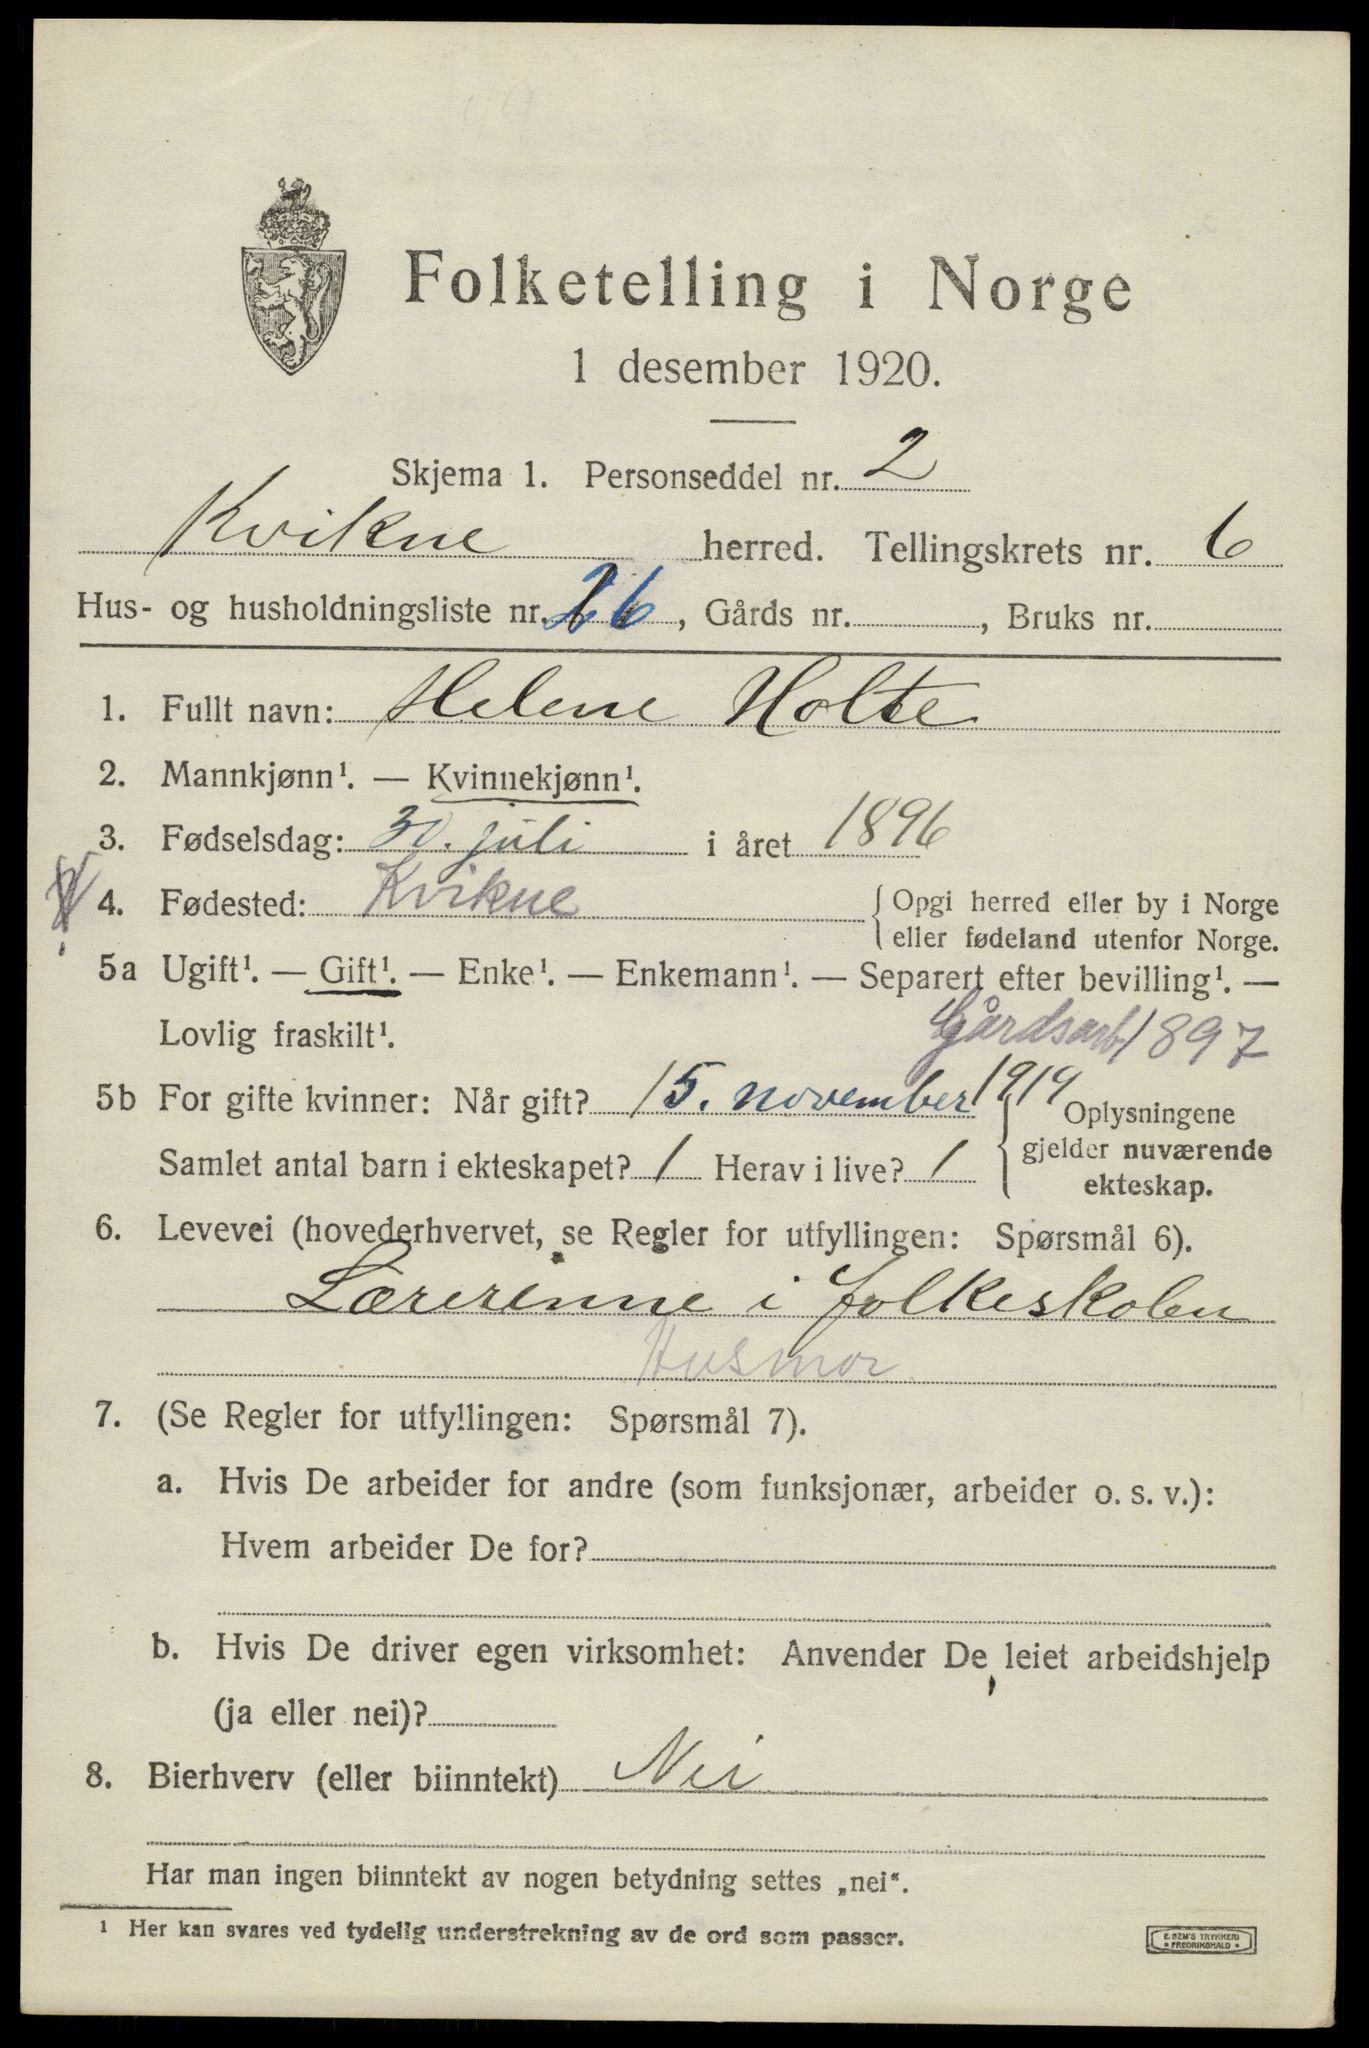 Folketelling i Norge
1 desember 1920.
Skjema 1. Personseddel nr. 2
Kvikne herred. Tellingskrets nr. 6
Hus- og husholdningsliste nr. 26, Gårds nr. , Bruks nr.
1. Fullt navn: Helene Holte
2. Mannkjønn¹. — Kvinnekjønn¹.
3. Fødselsdag: 30. juli i året 1896
4. Fødested: Kvikne { Opgi herred eller by i Norge
eller fødeland utenfor Norge.
5a Ugift¹. — Gift¹. — Enke¹. — Enkemann¹. — Separert efter bevilling¹. —
Lovlig fraskilt¹. Gårdsarb 1897
5b For gifte kvinner: Når gift? 15. november 1919
Oplysningene
gjelder nuværende
ekteskap.
Samlet antal barn i ekteskapet? 1 Herav i live? 1
6. Levevei (hovederhvervet, se Regler for utfyllingen: Spørsmål 6).
Lærerinne i folkeskolen
Husmor
7. (Se Regler for utfyllingen: Spørsmål 7).
a. Hvis De arbeider for andre (som funksjonær, arbeider o. s. v.):
Hvem arbeider De for?
b. Hvis De driver egen virksomhet: Anvender De leiet arbeidshjelp
(ja eller nei)?
8. Bierhverv (eller biinntekt) Nei
Har man ingen biinntekt av nogen betydning settes „nei“.
¹ Her kan svares ved tydelig understrekning av de ord som passer.
E. SEM'S TRYKKERI
• FREDRIKSHALD •